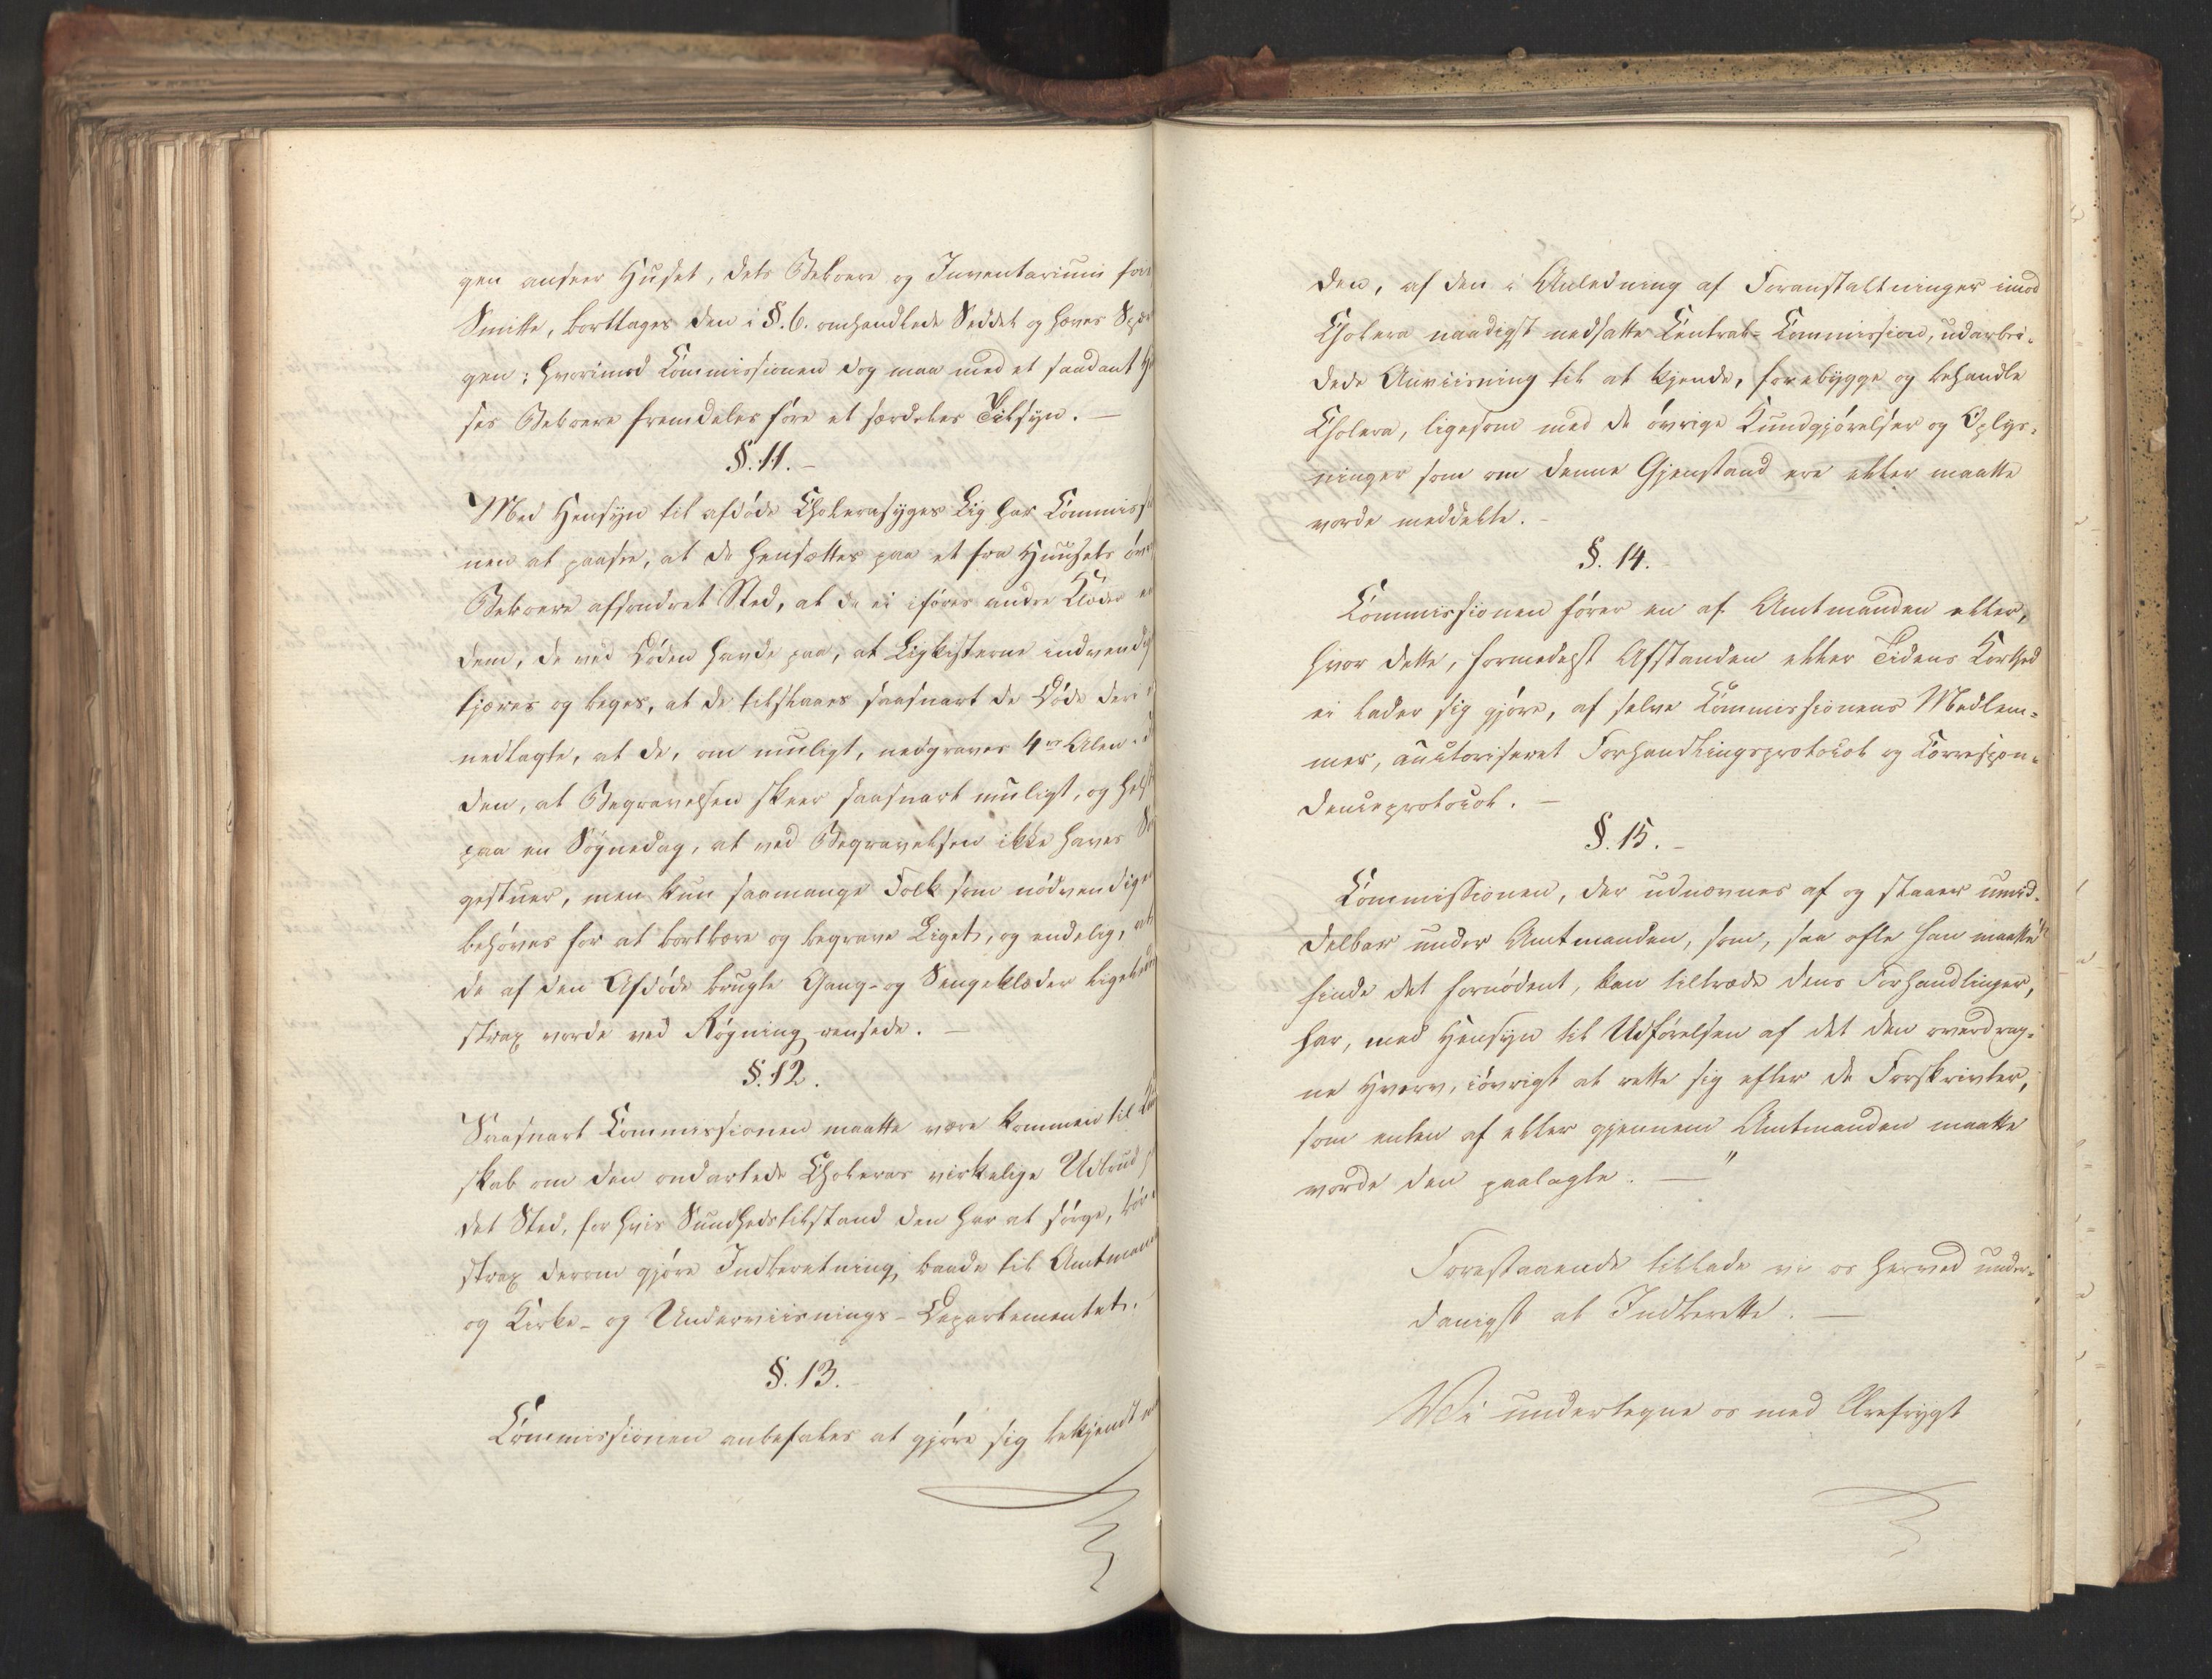 gen anseer Huset, dets Beboere og Inventarium for
Smitte, borttages den i §. 6. omhandlede Seddel og hæves Spær
gen; hvorimod Commissionen dog maa med et saadant
ses Beboere fremdeles føre et særdeles Tilsyn. —
§. 11. –
Med Hensyn til afdøde Cholerasyges Lig har Commissio
nen at paasee, at de hensættes paa et fra Huusets øvr
Beboere afsondret Sted, at de ei iføres andre Klæder e
dem, de ved Døden havde paa, at Ligkisterne indvendig
tjæres og beges, at de tilslaaes saasnart de Døde deri
nedlagte, at de, om muligt, nedgraves 4re Alen i
den, at Begravelsen skeer saasnart muligt, og helst
paa en Søgnedag, at ved Begravelsen ikke haves
gestuer, men kun saamange Folk som nødvendigen
behøves for at bortbære og begrave Liget, og endelig, at
de af den Afdøde brugte Gang- og Sengeklæder
strax vorde ved Røgning rensede. —
§. 12.
Saasnart Commissionen maatte være kommen til Kund
skab om den ondartede Choleras virkelige Udbrud
det Sted, for hvis Sundhedstilstand den har at sørge, bør
strax derom gjøre Indberetning, baade til Amtmand
og Kirke- og Underviisnings-Departementet.
§. 13. –
Commissionen anbefales at gjøre sig bekjendt
den, af den i Anledning af Foranstaltninger imod
Cholera naadigst nedsatte Central-Commission, udarbei-
dede Anviisning til at kjende, forebygge og behandle
Cholera, ligesom med de øvrige Kundgjørelser og Oplys-
ninger som om denne Gjenstand ere eller maatte
vorde meddelte. –
§. 14.
Commissionen fører en af Amtmanden eller,
hvor dette, formedelst Afstanden eller Tidens Korthed
ei lader sig gjøre, af selve Commissionens Medlem-
mer, auctoriseret Forhandlingsprotocol og Correspon-
denceprotocol. —
§. 15. –
Commissionen, der udnævnes af og staaer umid-
delbar under Amtmanden, som, saa ofte han maatte
finde det fornødent, kan tiltræde dens Forhandlinger,
har, med Hensyn til Udførelsen af det den overdrag-
ne Hverv, iøvrigt at rette sig efter de Forskrivter,
som enten af eller gjennem Amtmanden maatte
vorde den paalagte. — "
Forestaaende tillade vi os herved under-
danigst at Indberette. —
Vi undertegne os med Ærefrygt